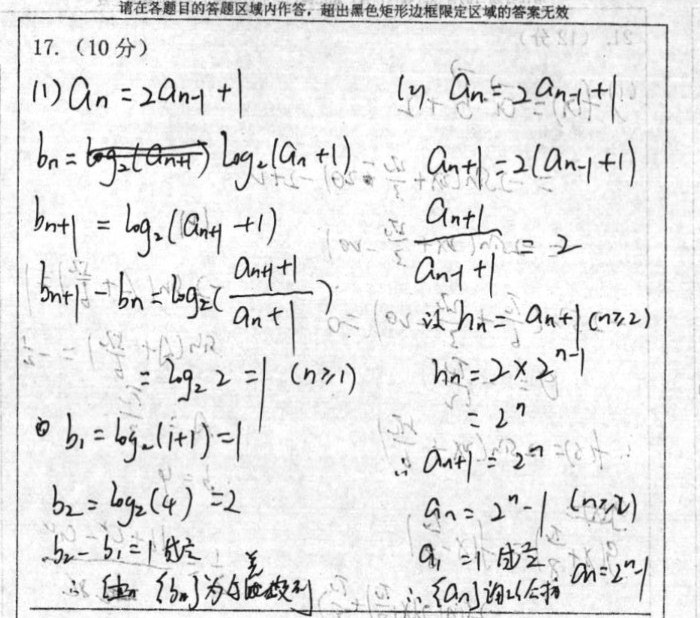 请在各题目的答题区域内作答,超出黑色矩形边框限定区域的答案无效
17.(10分)
(1) an = 2an-1 + 1
bn = log2(an+1) log2(an+1)
bn+1 = log2(an+1 +1)
bn+1 - bn = log2(an+1+1 / an+1)
= log2 2 = 1 (n≥1)
b1 = log2(1+1) = 1
b2 = log2(4) = 2
b2 - b1 = 1 成立
∴ {bn}为 差数列
an = 2an-1 + 1
an+1 = 2(an-1+1)
an+1 / an-1+1 = 2
设 hn = an+1 (n≥2)
hn = 2×2^n-1
= 2^n
∴ an+1 = 2^n
an = 2^n - 1 (n≥2)
a1 = 1 成立
∴ {an} an=2^n-1